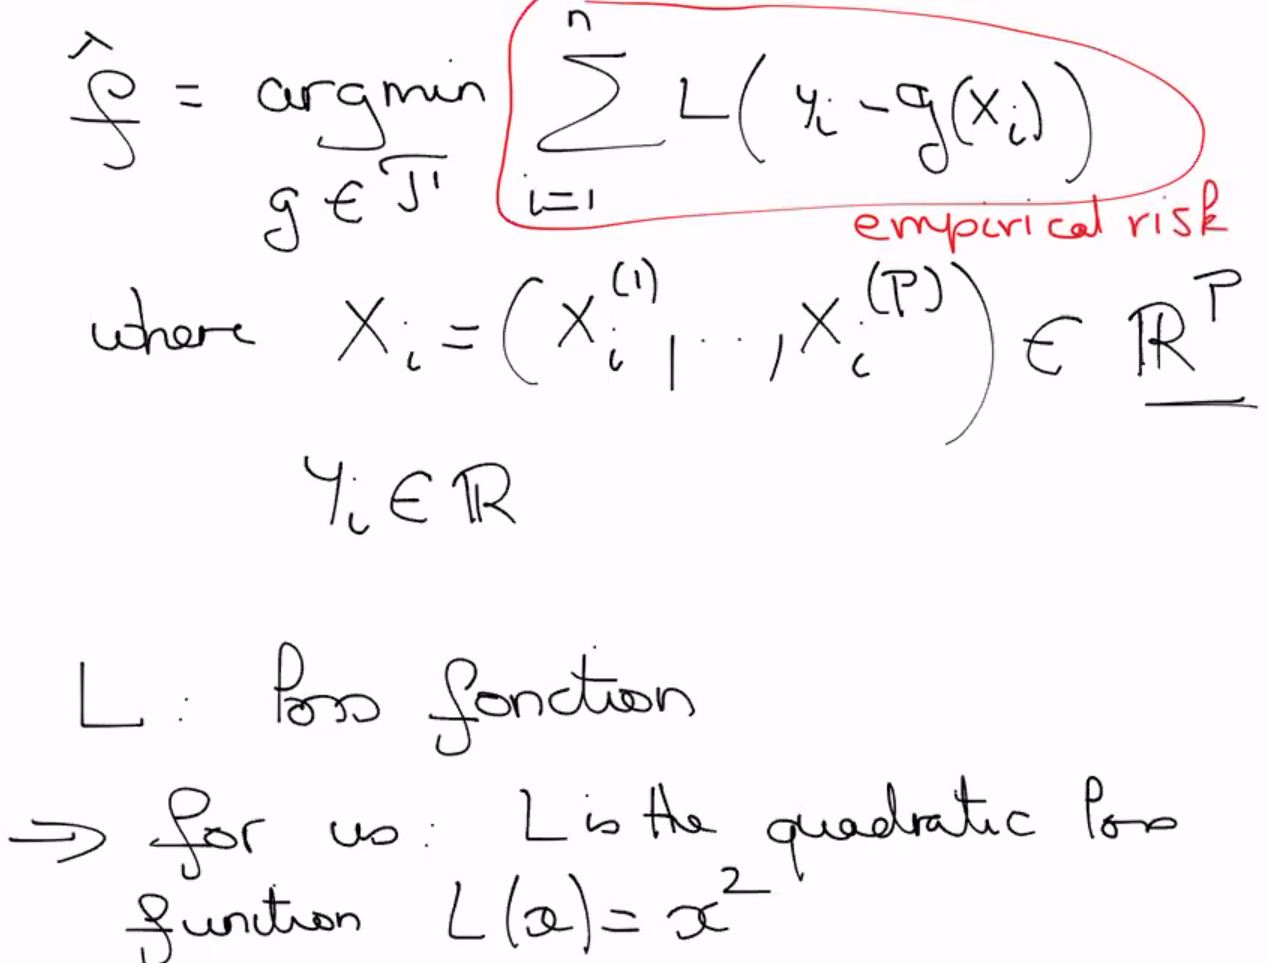 f̂ = argmin_{g ∈ F} ∑_{i=1}^{n} L(Y_i - g(X_i))
empirical risk
where X_i = (X_i^{(1)}, .., X_i^{(P)}) ∈ ℝ^P
Y_i ∈ ℝ
L : loss fonction
⇒ for us : L is the quadratic loss
function L(x) = x^2